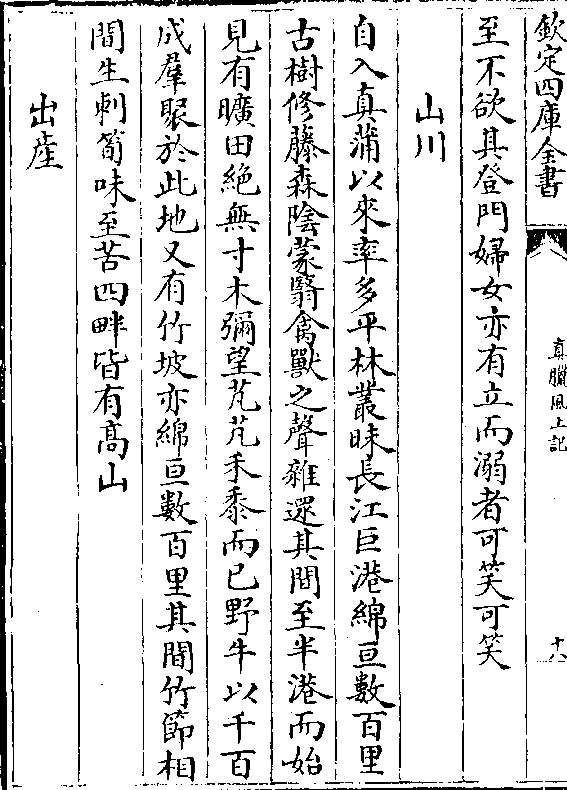 欽定四庫全書
真臘風土記
十八
至不欲其登門婦女亦有立而溺者可笑可笑
山川
自入真蒲以來率多平林叢昧長江巨港綿亘數百里
古樹修藤森陰蒙翳禽獸之聲雜還其間至半港而始
見有曠田絶無寸木彌望芃芃禾黍而已野牛以千百
成羣聚於此地又有竹坡亦綿亘數百里其間竹節相
間生刺筍味至苦四畔皆有髙山
出産